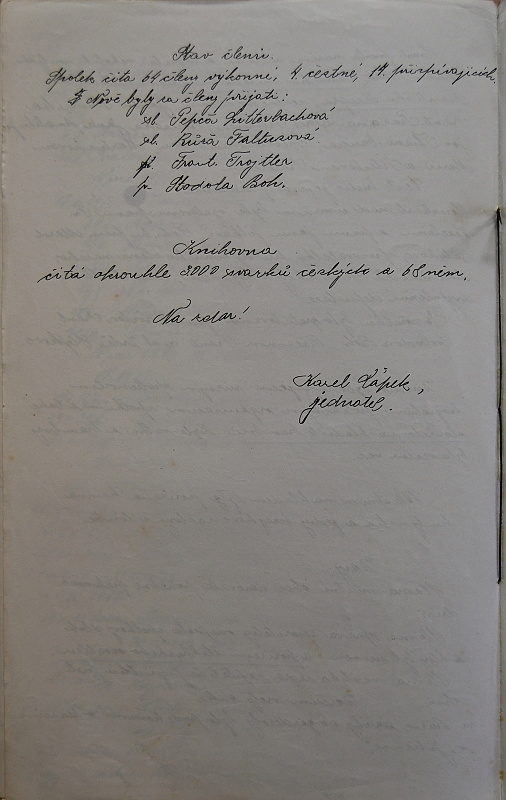 Stav členů.
Spolek čítá 64 členy výkonné, 4 čestné, 14 přispívajících.
Nově byly za členy přijati:
sl. Pepča Litterbachová
sl. Růža Faltusová
p. Frant. Trojtler
p. Hodola Boh.
Knihovna
čítá okrouhle 2000 svazků českých a 68 něm.
Na zdar!
Karel Čápek,
jednatel.